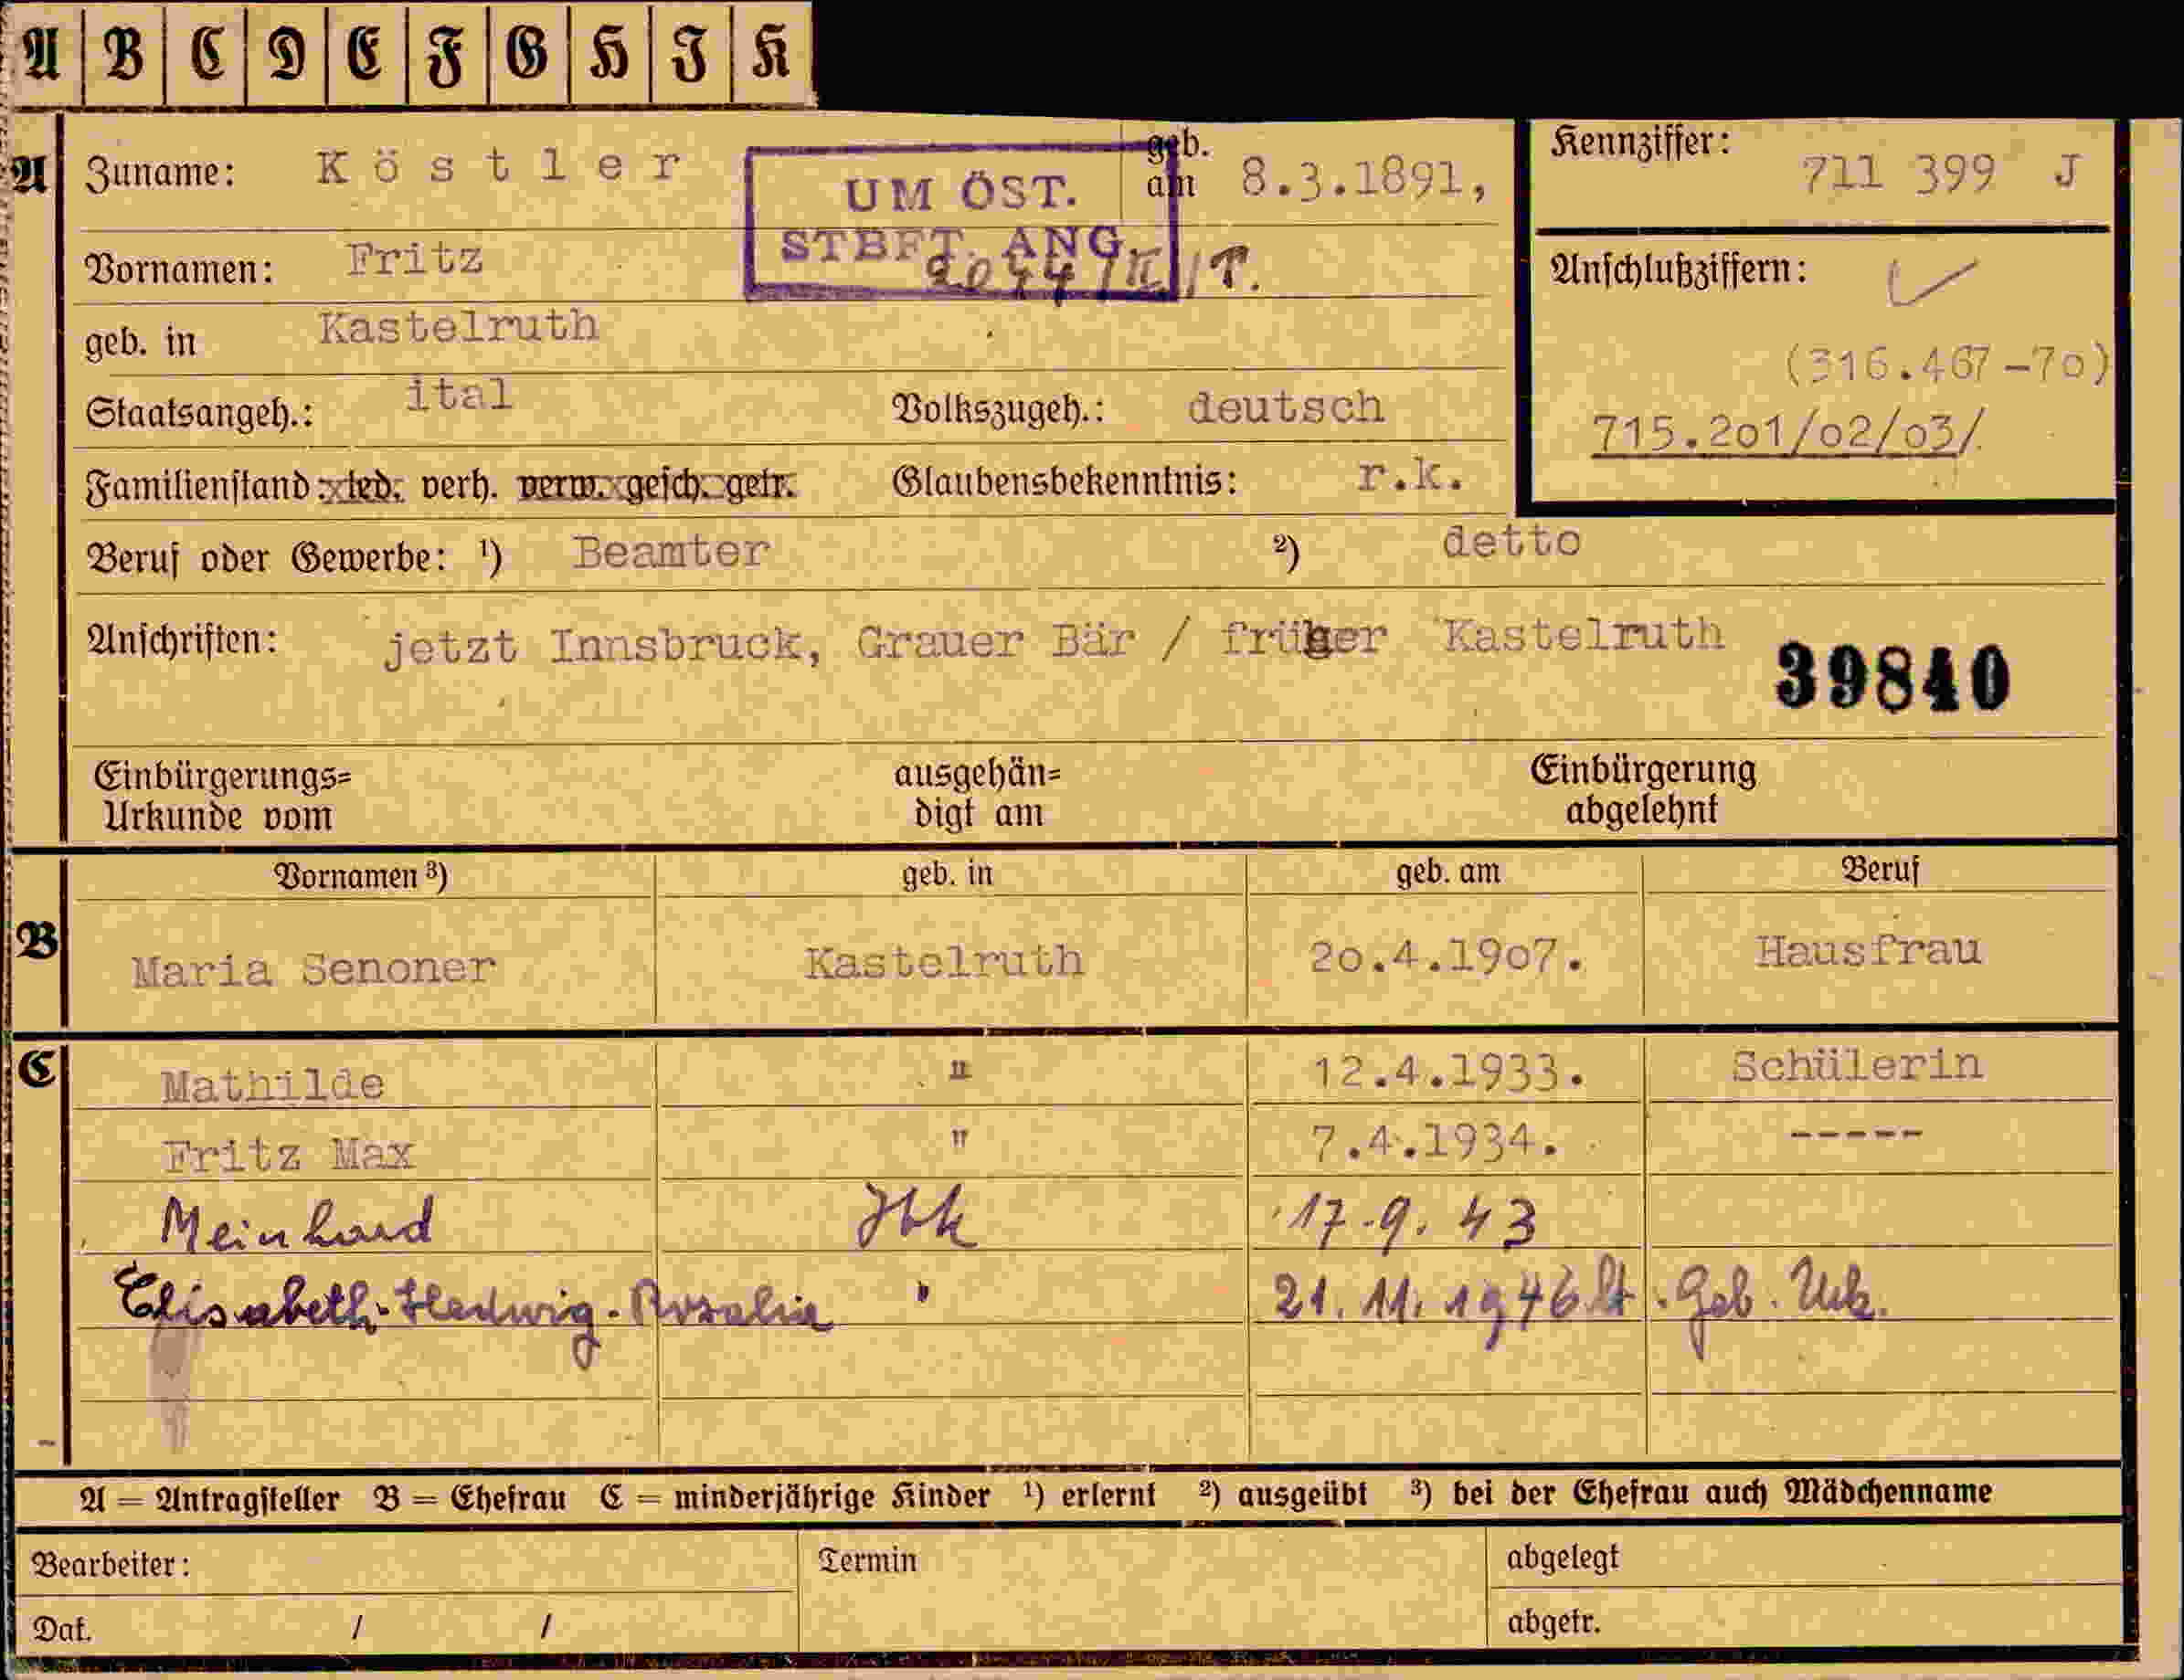 A B C D E F G H I K
A Zuname: Köstler geb. am 8.3.1891, Kennziffer: 711 399 J
UM ÖST. STBFT. ANG.
2044/II/T.
Vornamen: Fritz Anschlußziffern:
geb. in Kastelruth (316.467-70)
Staatsangeh.: ital Volkszugeh.: deutsch 715.201/02/03/
Familienstand: led. verh. verw. gesch. getr. Glaubensbekenntnis: r.k.
Beruf oder Gewerbe: ¹) Beamter ²) detto
Anschriften: jetzt Innsbruck, Grauer Bär / früher Kastelruth
39840
Einbürgerungs= Urkunde vom ausgehän= digt am Einbürgerung abgelehnt
Vornamen ³) geb. in geb. am Beruf
B Maria Senoner Kastelruth 20.4.1907. Hausfrau
C Mathilde " 12.4.1933. Schülerin
Fritz Max " 7.4.1934. -----
Meinhard Ibk 17.9.43
Elisabeth-Hedwig-Rosalia " 21.11.1946 lt. Geb. Urk.
A = Antragsteller B = Ehefrau C = minderjährige Kinder ¹) erlernt ²) ausgeübt ³) bei der Ehefrau auch Mädchenname
Bearbeiter: Termin abgelegt
Dat. / / abgetr.